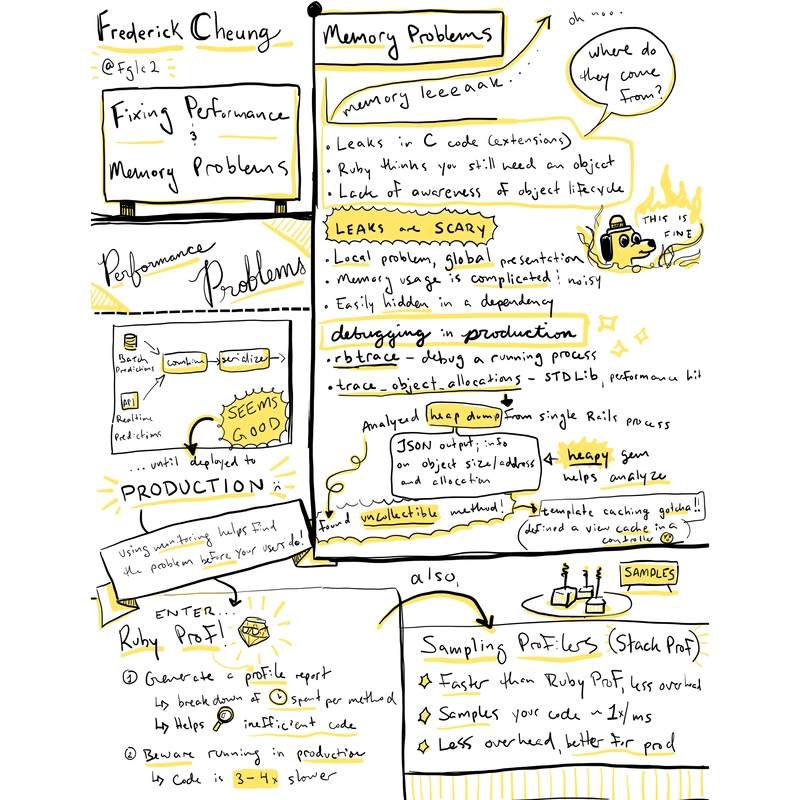 Frederick Cheung
@fglc2
Fixing Performance
&
Memory Problems
Performance
Problems
Batch
Predictions
combine
serialize
API
Realtime
Predictions
SEEMS
GOOD
... until deployed to
PRODUCTION
Using monitoring helps find
the problem before your users do!
ENTER...
Ruby Prof!
① Generate a profile report
↳ breakdown of spent per method
↳ Helps inefficient code
② Beware running in production
↳ Code is 3-4x slower
Memory Problems
oh noo..
memory leeeaak...
where do
they come
from?
• Leaks in C code (extensions)
• Ruby thinks you still need an object
• Lack of awareness of object lifecycle
LEAKS are SCARY
THIS IS
FINE
• Local problem, global presentation
• Memory usage is complicated & noisy
• Easily hidden in a dependency
debugging in production
• rbtrace - debug a running process
• trace_object_allocations - STDLib, performance hit
Analyzed heap dump from single Rails process
JSON output; info
on object size/address
and allocation
heapy gem
helps analyze
found uncollectible method!
template caching gotcha!!
(defined a view cache in a
controller
also,
SAMPLES
Sampling Profilers (Stack Prof)
Faster than Ruby Prof, less overhead
Samples your code ~ 1x/ms
Less overhead, better for prod